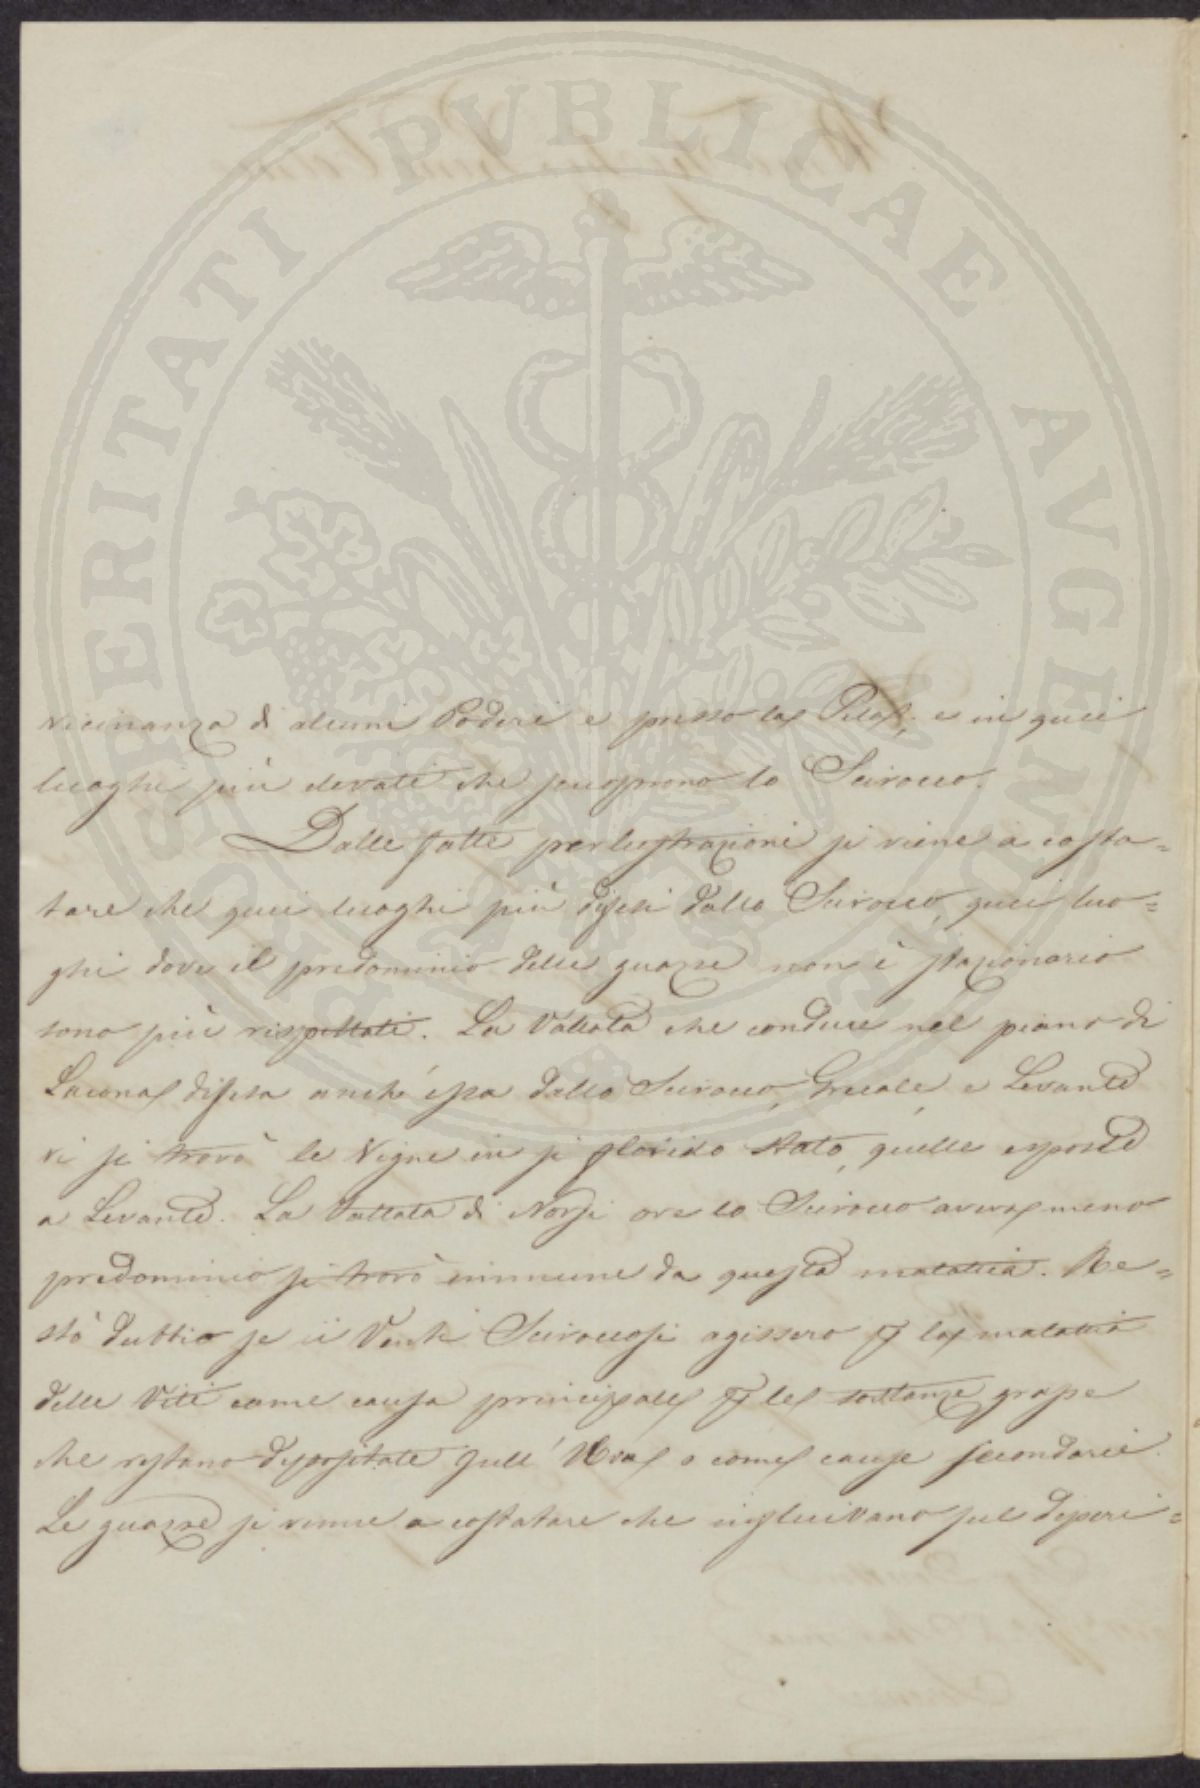 PROSPERITATI PVBLICAE AVGENDAE
vicinanza di alcuni Poderi e presso la Pila, e in quei
luoghi più elevati che scuoprono lo Scirocco.
Dalle fatte perlustrazioni si viene a costa=
tare che quei luoghi più difesi dallo Scirocco, quei luo=
ghi dove il predominio delle guazze non è stazionario
sono più rispettati. La Vallata che conduce nel piano di
Lacona difesa anch'essa dallo Scirocco, Grecale, e Levante
vi si trovò le Vigne in si florido stato, quelle esposte
a Levante. La Vallata di Norsi ove lo Scirocco aveva meno
predominio si trovò immune da questa malattia. Re=
stò dubbio se i Venti Sciroccosi agissero p la malattia
delle Viti come causa principale p le sostanze grasse
che restano depositate sull'Uva o come cause secondarie.
Le guazze si venne a costatare che influivano sul deperi=